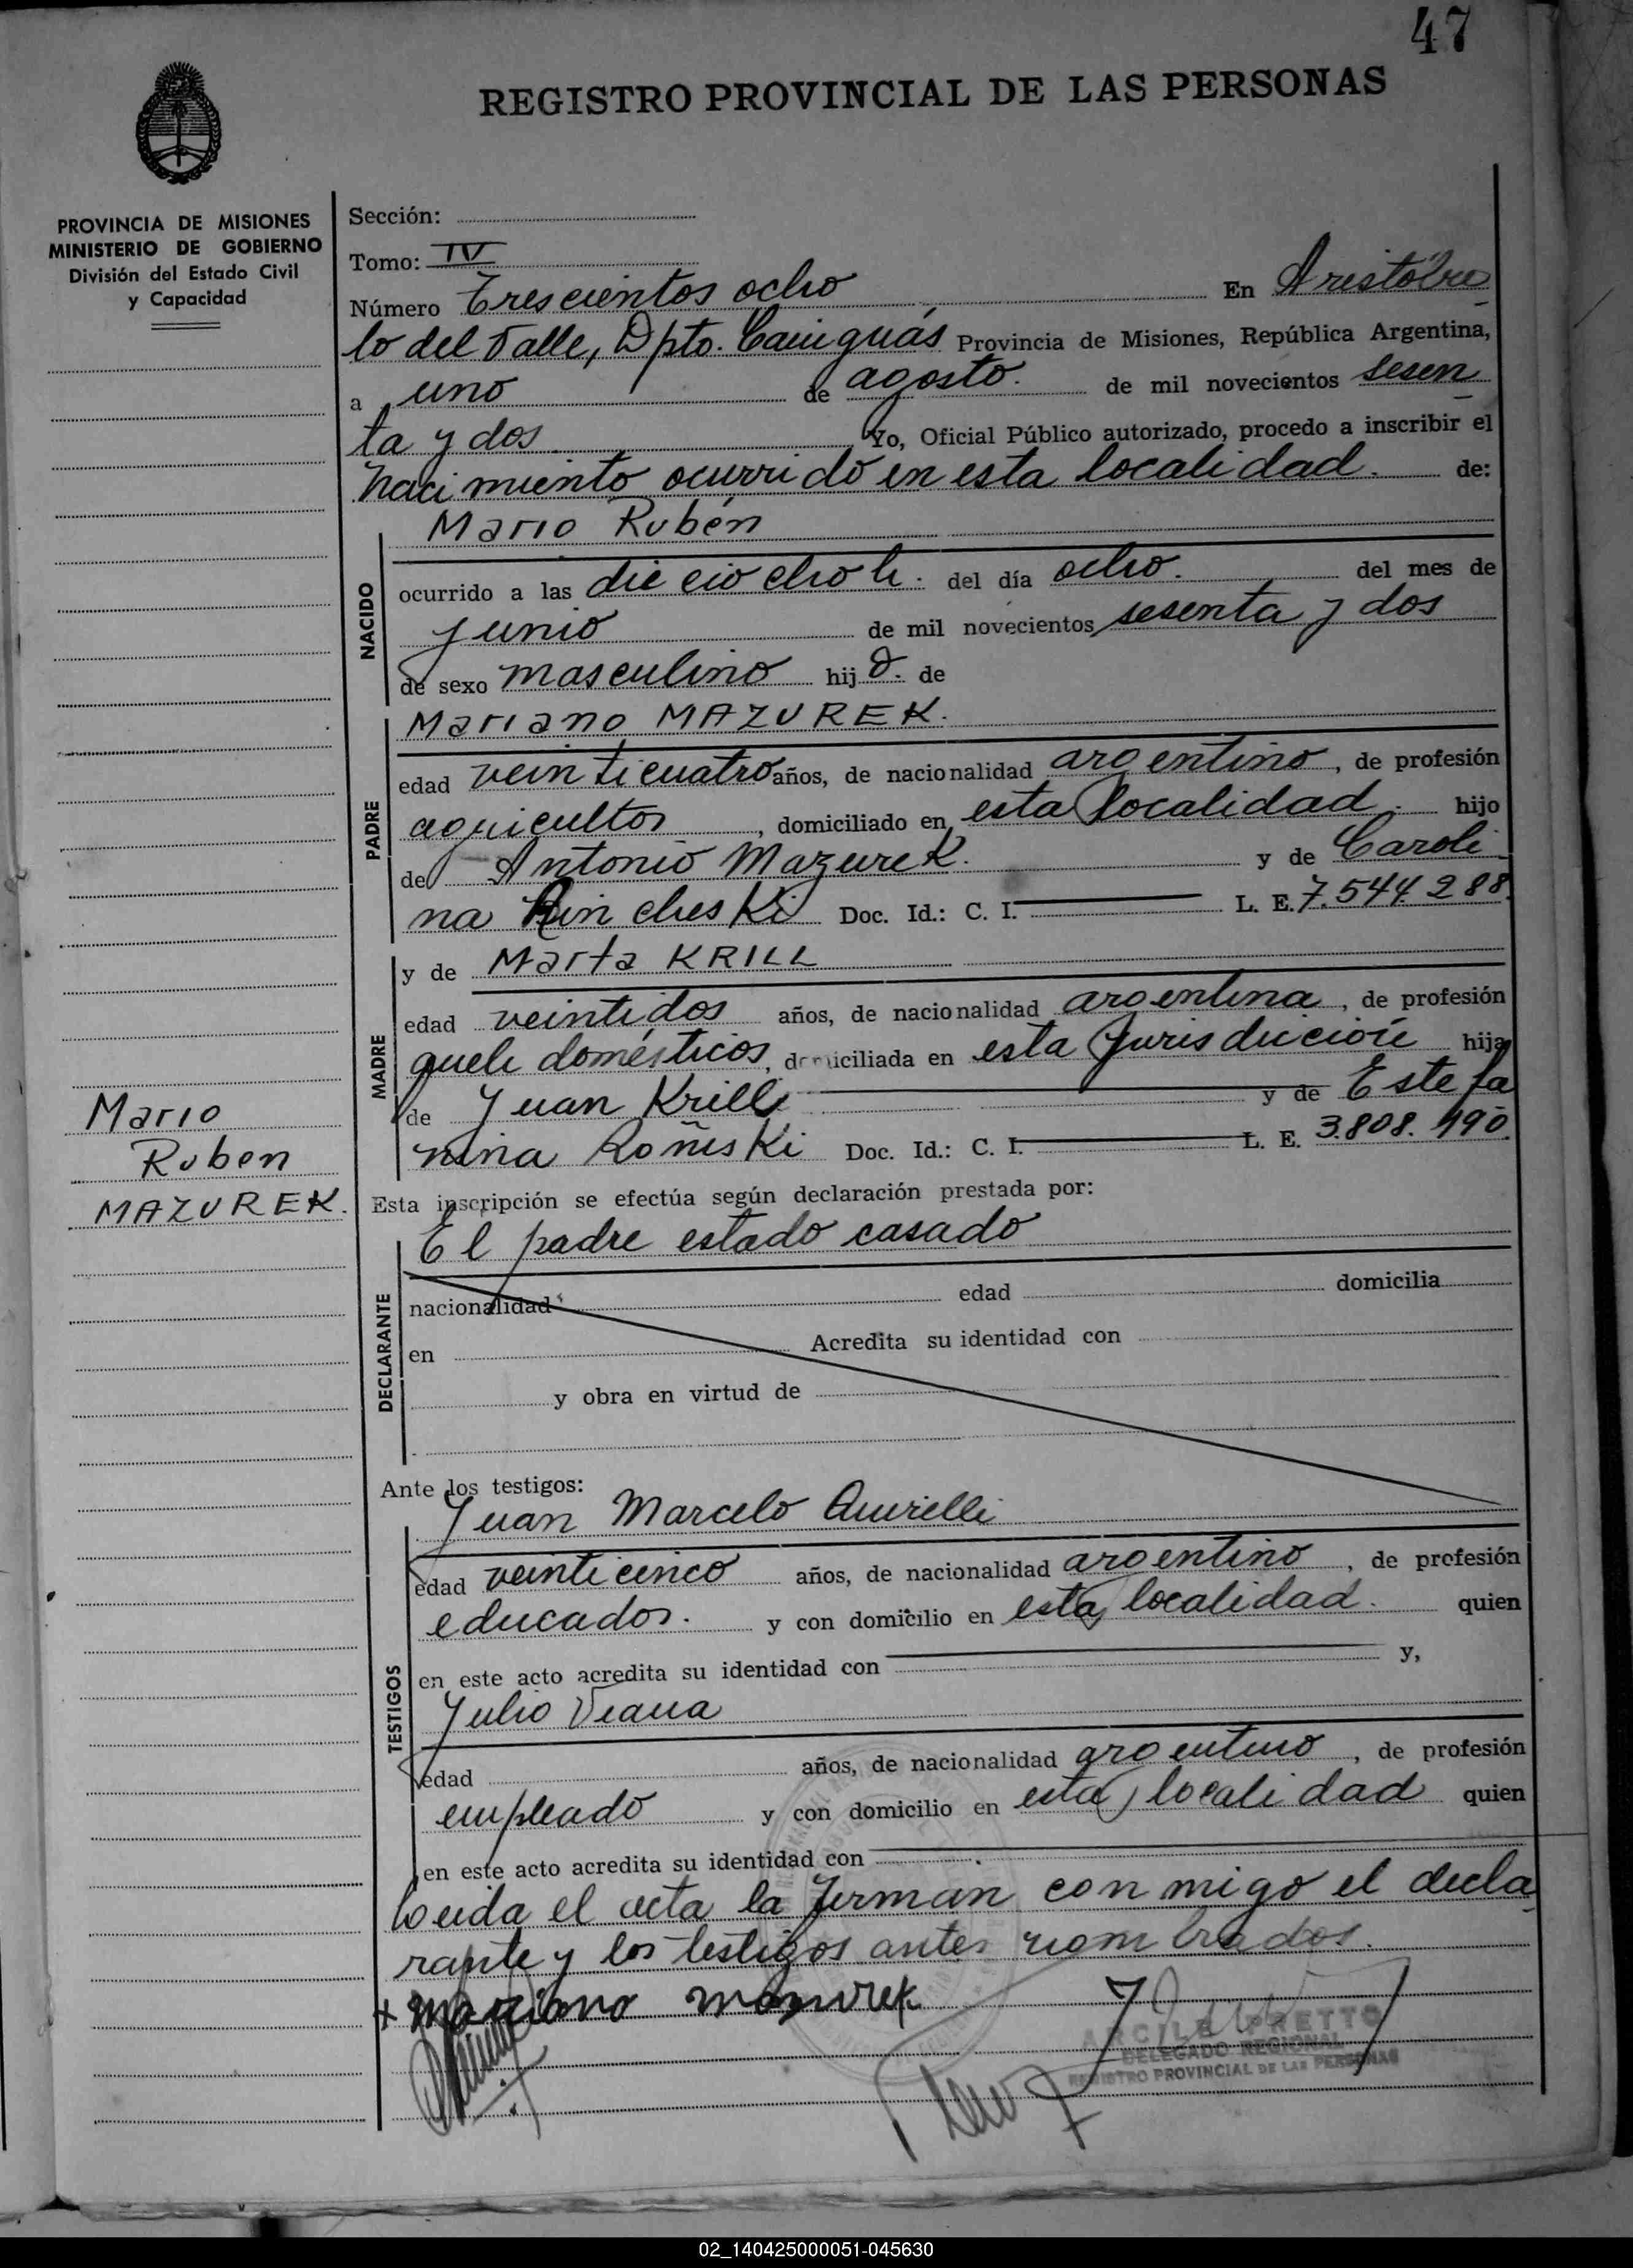 47
REGISTRO PROVINCIAL DE LAS PERSONAS
PROVINCIA DE MISIONES
MINISTERIO DE GOBIERNO
División del Estado Civil
y Capacidad
Sección:
Tomo: IV
Número Trescientos ocho En Aristóbu
lo del Valle, Dpto. Cainguás Provincia de Misiones, República Argentina,
a uno de agosto. de mil novecientos sesen
ta y dos Yo, Oficial Público autorizado, procedo a inscribir el
nacimiento ocurrido en esta localidad. de:
NACIDO
Mario Rubén
ocurrido a las dieciocho h. del día ocho. del mes de
junio de mil novecientos sesenta y dos
de sexo masculino hijo. de
PADRE
Mariano MAZUREK.
edad veinticuatro años, de nacionalidad argentino, de profesión
agricultor, domiciliado en esta localidad. hijo
de Antonio Mazurek. y de Caroli
na Doc. Id.: C. I. L. E. 7.544.288
MADRE
y de Marta KRILL
edad veintidos años, de nacionalidad argentina, de profesión
domésticos, domiciliada en esta Jurisdicción hija
de Juan Krill y de Estefa
nina Roñiski Doc. Id.: C. I. L. E. 3.808.490
Mario
Ruben
MAZUREK.
Esta inscripción se efectúa según declaración prestada por:
DECLARANTE
El padre estado casado
nacionalidad edad domicilia
en Acredita su identidad con
y obra en virtud de
Ante los testigos:
TESTIGOS
Juan Marcelo
edad veinticinco años, de nacionalidad argentino, de profesión
educador. y con domicilio en esta localidad. quien
en este acto acredita su identidad con y,
Julio Viana
edad años, de nacionalidad argentino, de profesión
empleado y con domicilio en esta localidad quien
en este acto acredita su identidad con
Leida el acta la firman conmigo el decla
rante y los testigos antes nombrados.
+ Mariano Mazurek
ARCILE PRETTO
DELEGADO REGIONAL
REGISTRO PROVINCIAL DE LAS PERSONAS
02_140425000051-045630